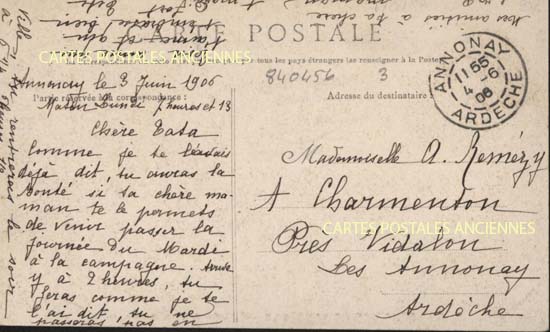 CARTE POSTALE
CARTES POSTALES ANCIENNES
tous les pays étrangers (se renseigner à la Poste
Annonay le 3 Juin 1906
840456 3
Partie réservée à la correspondance
Adresse du destinataire
ANNONAY
1155
4-6
06
ARDÈCHE
Matin Lundi 7 heures et 13
Chère Tata
Comme je te l'avais
déjà dit, tu auras la
bonté si ta chère ma-
man te le permets
de venir passer la
journée du Mardi
à la campagne.
y à 2 heures, tu
feras comme je te
l'ai dit, tu ne
passeras pas en
rentreras le soir
Mademoiselle A. Remézy
A Charmenton
CARTES POSTALES ANCIENNES
Près Vidalon
Les Annonay
Ardèche